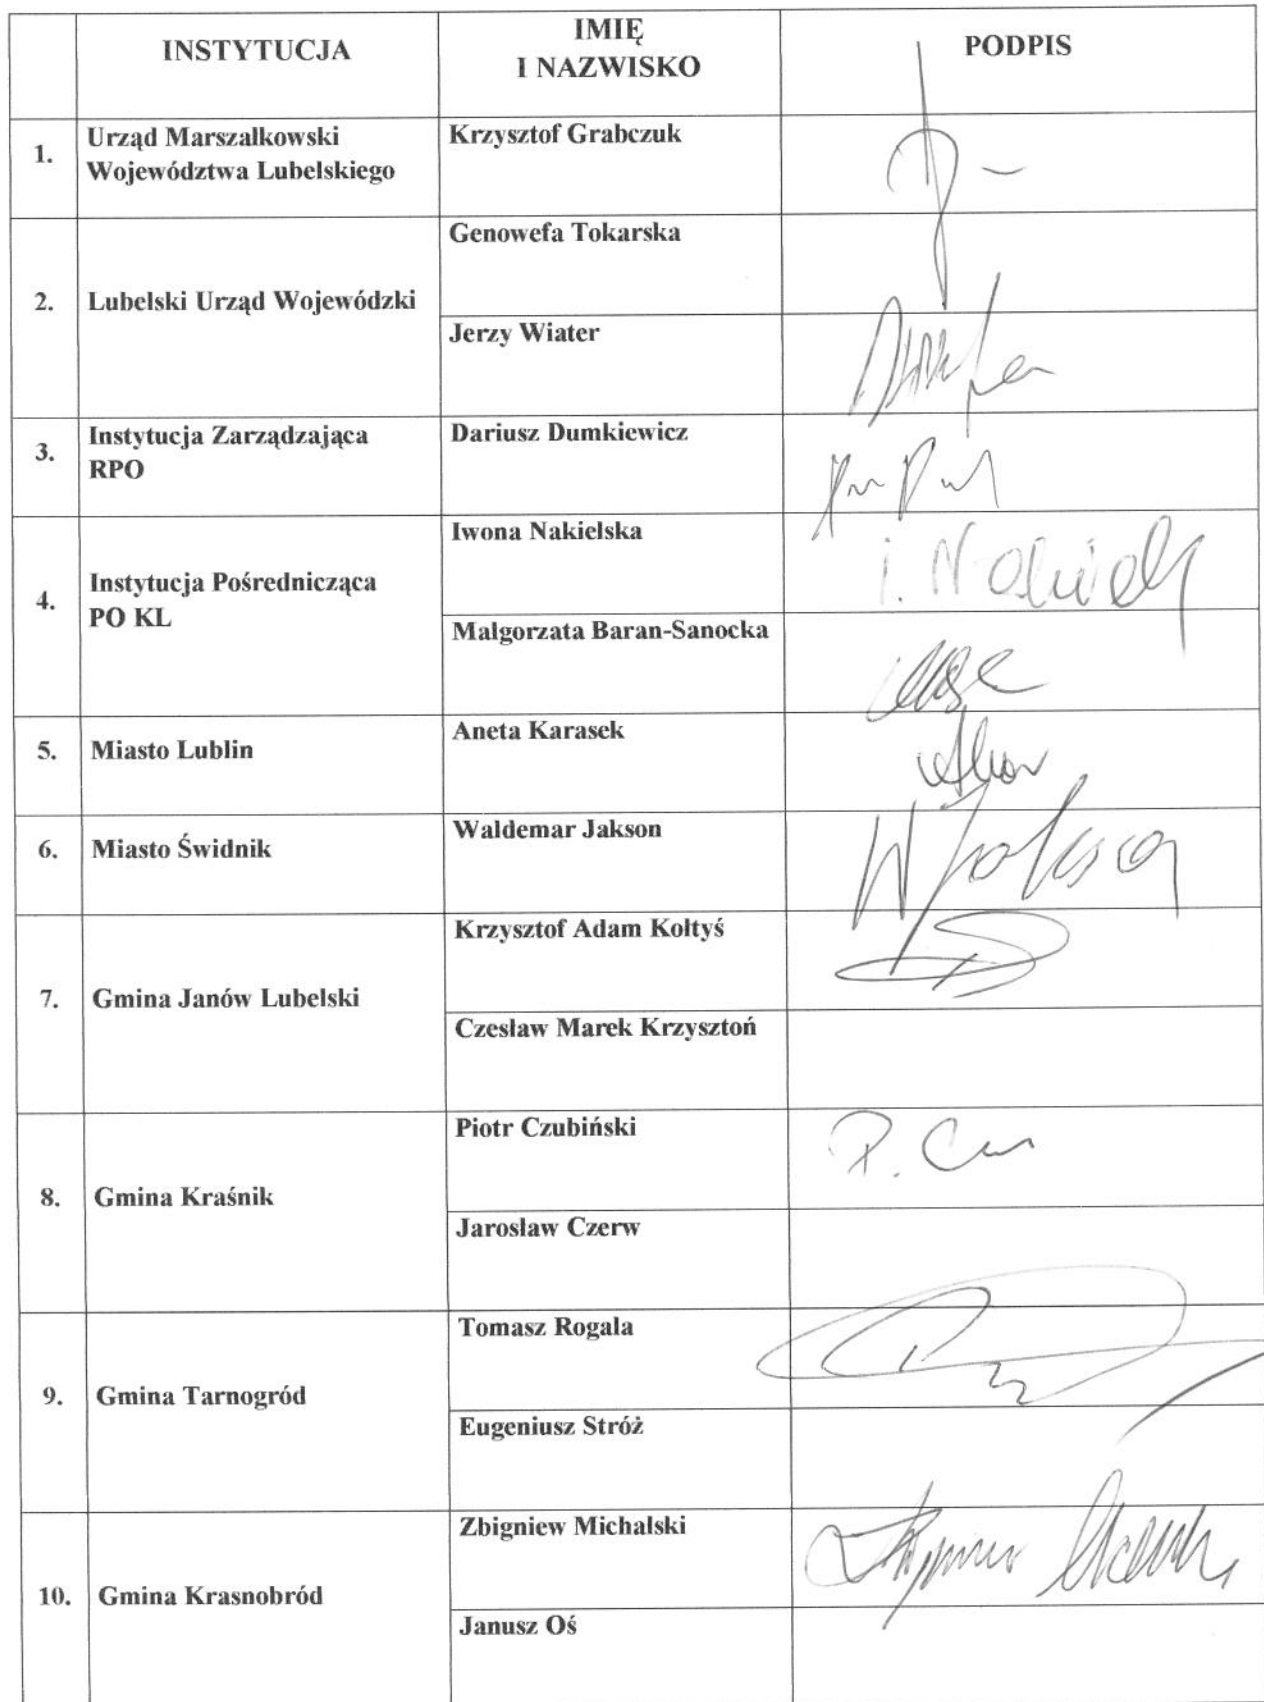 INSTYTUCJA
IMIĘ
I NAZWISKO
PODPIS
1.
Urząd Marszałkowski
Województwa Lubelskiego
Krzysztof Grabczuk
2.
Lubelski Urząd Wojewódzki
Genowefa Tokarska
Jerzy Wiater
3.
Instytucja Zarządzająca
RPO
Dariusz Dumkiewicz
4.
Instytucja Pośrednicząca
PO KL
Iwona Nakielska
Małgorzata Baran-Sanocka
5.
Miasto Lublin
Aneta Karasek
6.
Miasto Świdnik
Waldemar Jakson
7.
Gmina Janów Lubelski
Krzysztof Adam Kołtyś
Czesław Marek Krzysztoń
8.
Gmina Kraśnik
Piotr Czubiński
Jarosław Czerw
9.
Gmina Tarnogród
Tomasz Rogala
Eugeniusz Stróż
10.
Gmina Krasnobród
Zbigniew Michalski
Janusz Oś